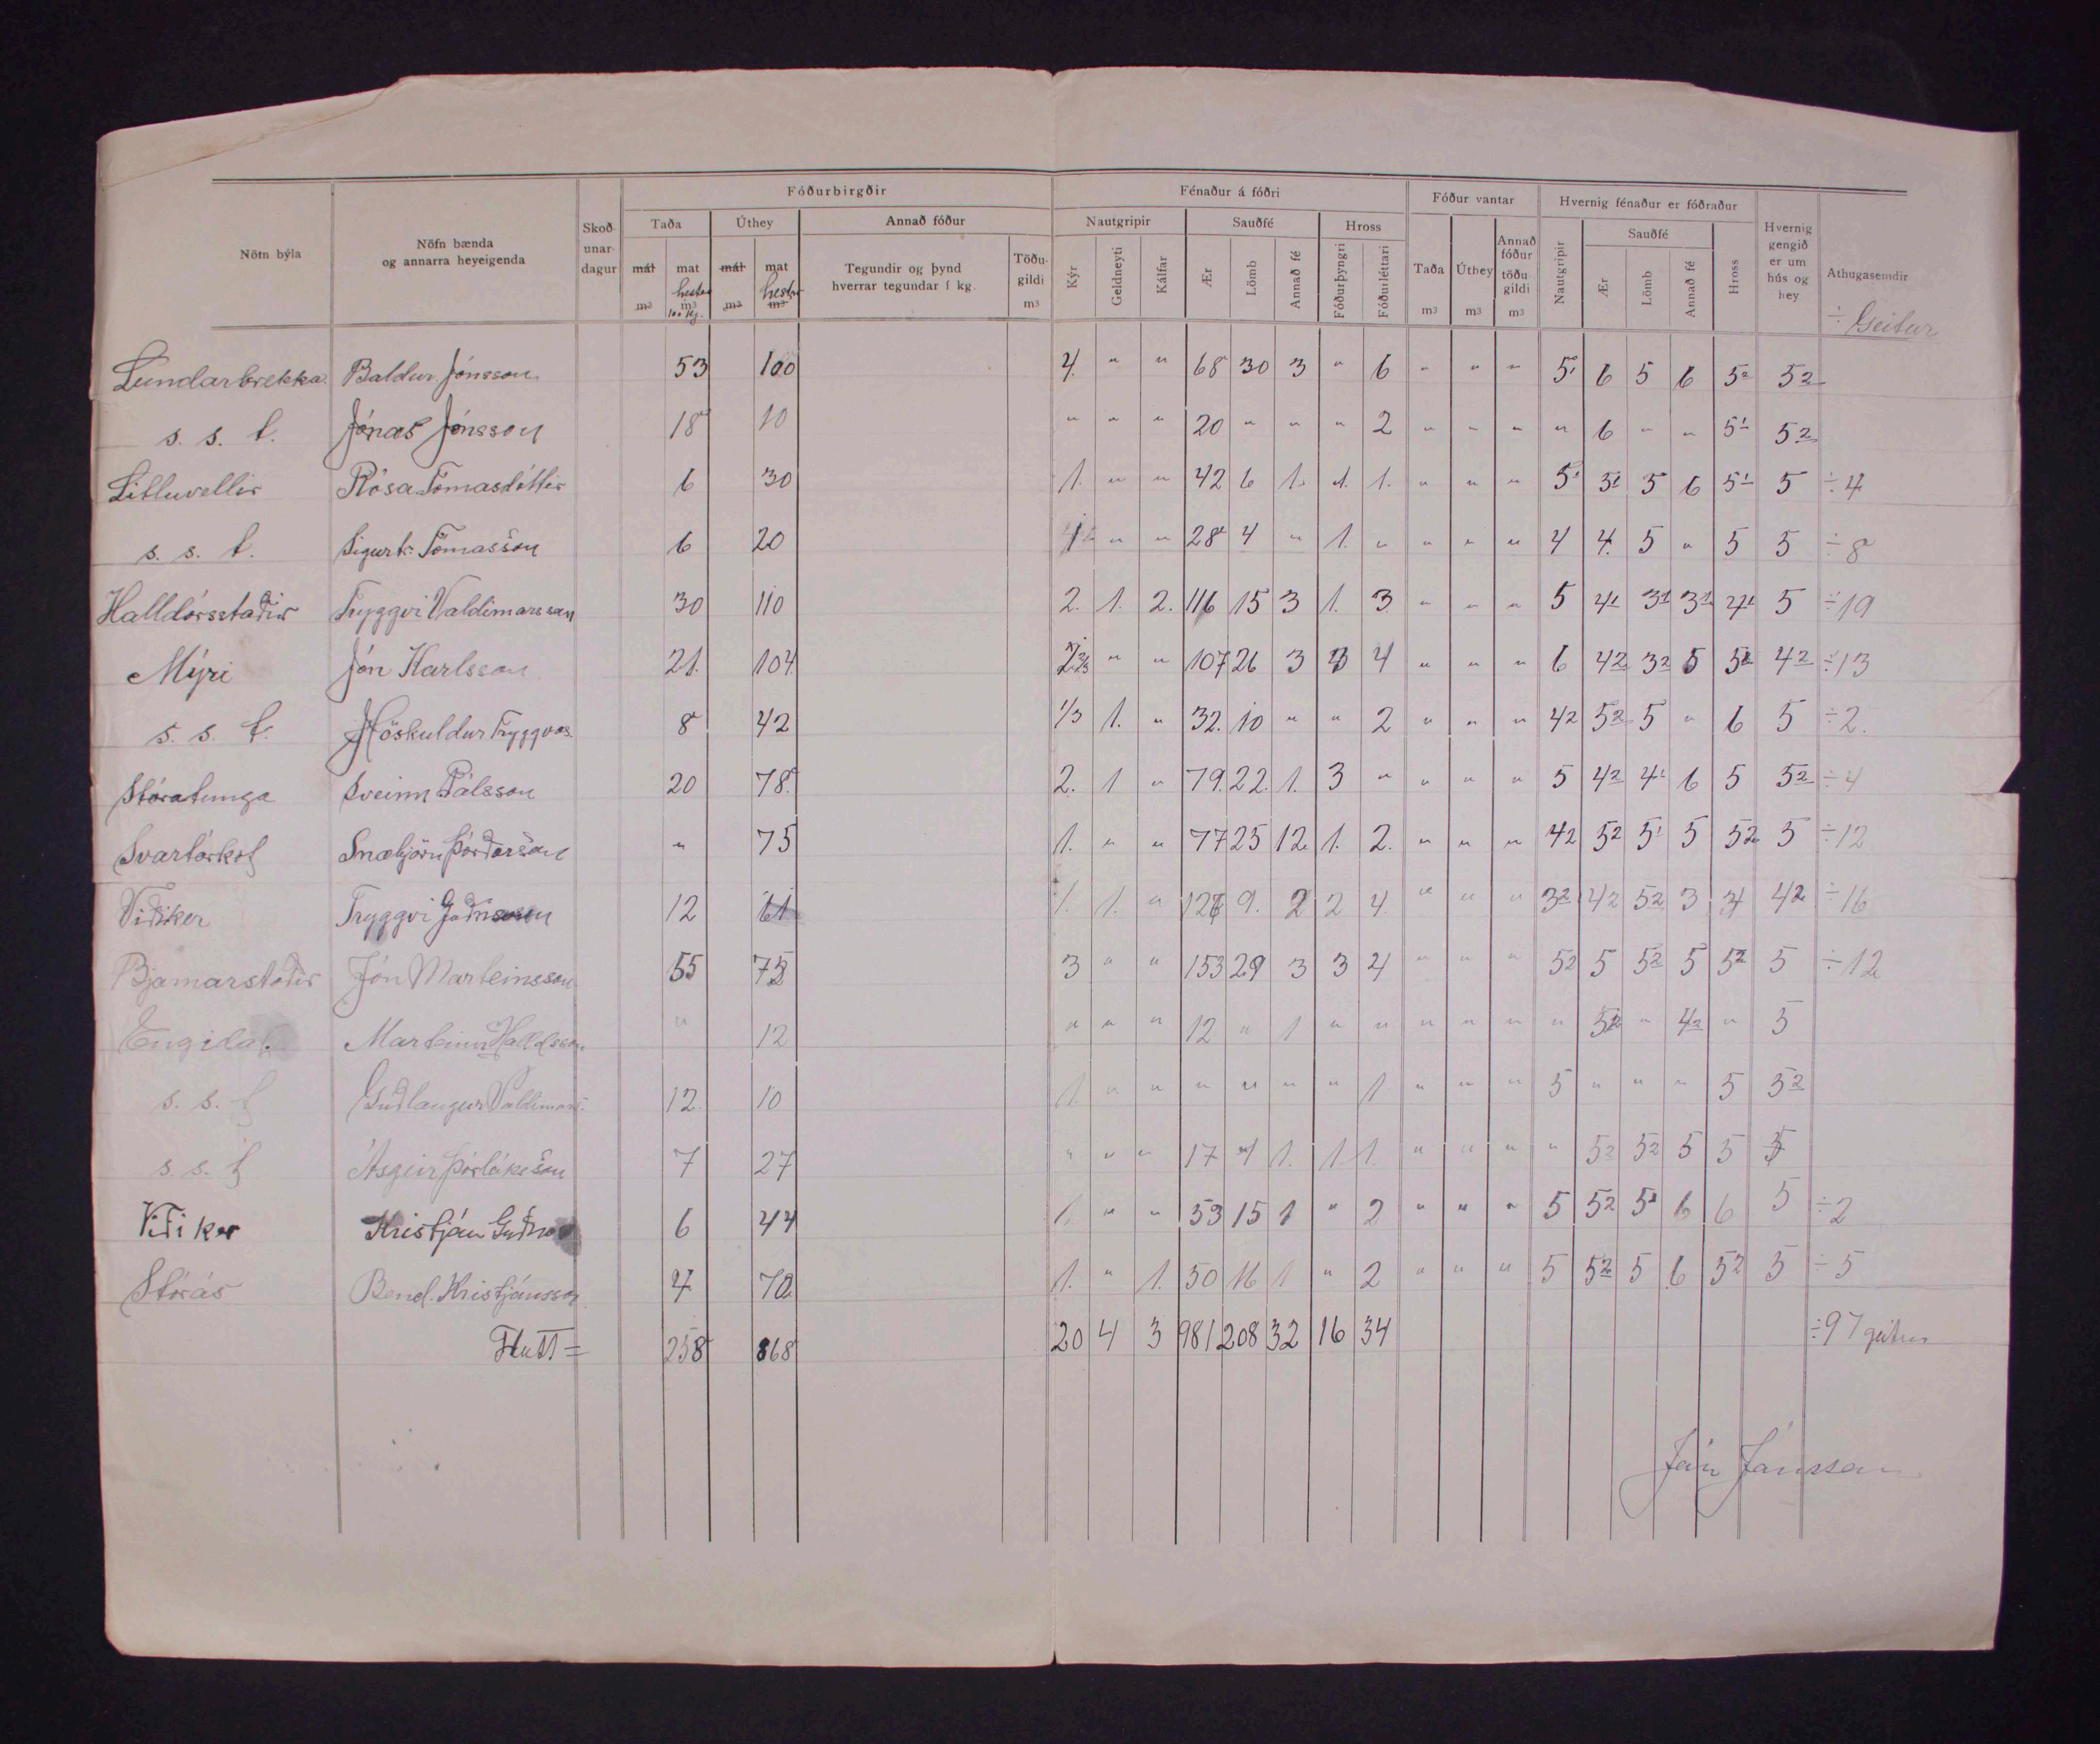 Fóðurbirgðir Fénaður á fóðri Fóður vantar Hvernig fénaður er fóðraður
Nöfn býla Nöfn bænda og annarra heyeigenda Skoðunardagur Taða Úthey Annað fóður Nautgripir Sauðfé Hross Taða Úthey Annað fóður töðugildi Nautgripir Sauðfé Hross Hvernig gengið er um hús og hey Athugasemdir
mál mat mál mat Tegundir og þynd hverrar tegundar í kg. Töðugildi Kýr Geldneyti Kálfar Ær Lömb Annað fé Fóðurþyngri Fóðurléttari Ær Lömb Annað fé
m3 hestar m3 100 kg. m3 hestar m3 m3 m3 m3 m3 ÷ Geitur
Lundarbrekka Baldur Jónsson 53 100 4 " " 68 30 3 " 6 " " " 5¹ 6 5 6 5² 52
s. s. t. Jónas Jónsson 18 10 " " " 20 " " " 2 " " " " 6 " " 5¹ 52
Litluvellir Rósa Tómasdóttir 6 30 1. " " 42 6 1. 1. 1. " " " 5¹ 5¹ 5 6 5¹ 5 ÷ 4
s. s. t. Sigurb. Tómasson 6 20 1 " " 28 4 " 1. " " " " 4 4. 5 " 5 5 ÷ 8
Halldórsstaðir Tryggvi Valdimarsson 30 110 2. 1. 2. 116 15 3 1. 3 " " " 5 4¹ 3¹ 3¹ 4¹ 5 ÷ 19
Mýri Jón Karlsson 21. 104 2 2/3 " " 107 26 3 3 4 " " " 6 42 32 5 5² 42 ÷ 13
s. s. t. Höskuldur Tryggvas. 8 42 1/3 1. " 32. 10 " " 2 " " " 42 52 5 " 6 5 ÷ 2.
Stóratunga Sveinn Pálsson 20 78. 2. 1 " 79. 22. 1. 3 " " " " 5 42 4¹ 6 5 52 ÷ 4
Svartárkot Snæbjörn Þórðarson " 75 1. " " 77 25 12 1. 2. " " " 42 52 5¹ 5 52 5 ÷ 12
Víðiker Tryggvi Guðnason 12 61 1. 1. " 126 9. 2 2 4 " " " 32 42 52 3 4 42 ÷ 16
Bjarnarstaðir Jón Marteinsson 55 75 3 " " 153 29 3 3 4 " " " 52 5 52 5 52 5 ÷ 12
Engidal Marteinn Halldsson " 12 " " " 12 " 1 " " " " " " 52 " 42 " 5
s. s. t Guðlaugur Valdimars. 12. 10 1 " " " " " " 1 " " " 5 " " " 5 52
s. s. t Ásgeir Þorláksson 7 27 " " " 17 1 1. 1 1. " " " " 52 52 5 5 5
Víðiker Kristján Guðnas 6 44 1. " " 53 15 1 " 2 " " " 5 52 5¹ 6 6 5 ÷ 2
Stórás Bened. Kristjánsson 4 70 1. " 1. 50 16 1 " 2 " " " 5 52 5 6 52 5 ÷ 5
Flutt = 258 868 20 4 3 981 208 32 16 34 ÷ 97 geitur
Jón Jónsson